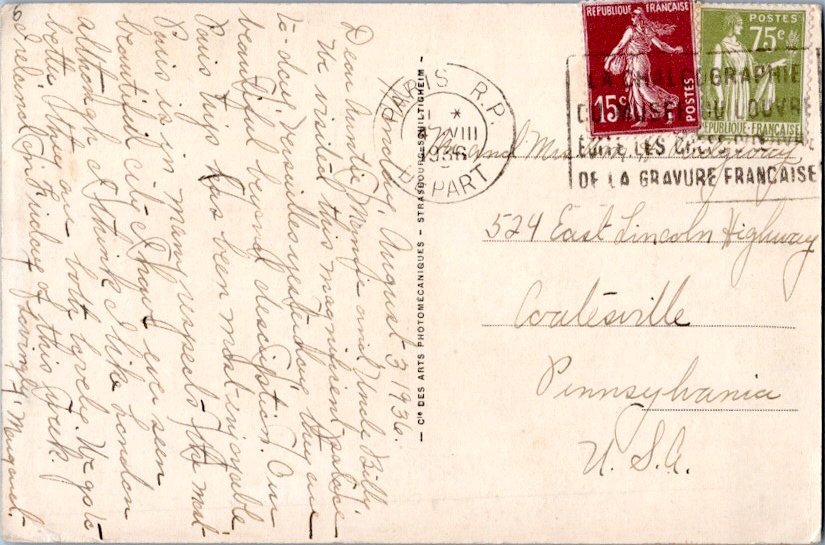 Monday, August 3, 1936.
Dear Auntie Mamie and Uncle Billy
We visited this magnificent palace
to-day, Versailles yesterday. They are
beautiful beyond description. Our
Paris trip has been most enjoyable.
Paris in many respects is the most
beautiful city I have ever seen
although I think I like London
better. They are both lovely. We go to
on Friday of this week.
Lovingly, Margaret.
Cie DES ARTS PHOTOMÉCANIQUES - STRASBOURG-SCHILTIGHEIM
PARIS R.P.
VIII
1936
DEPART
REPUBLIQUE FRANÇAISE
15c
POSTES
POSTES
75c
REPUBLIQUE FRANÇAISE
LA CHALCOGRAPHIE
DU MUSEE DU LOUVRE
EDITE LES CHEFS
DE LA GRAVURE FRANÇAISE
and Mrs.
524 East Lincoln Highway
Coatesville
Pennsylvania
U.S.A.